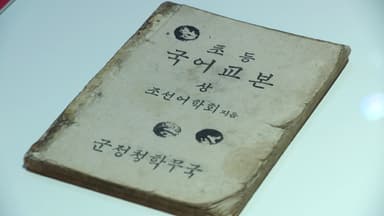 초등
국어교본
상
조선어학회 지음
군정청학무국